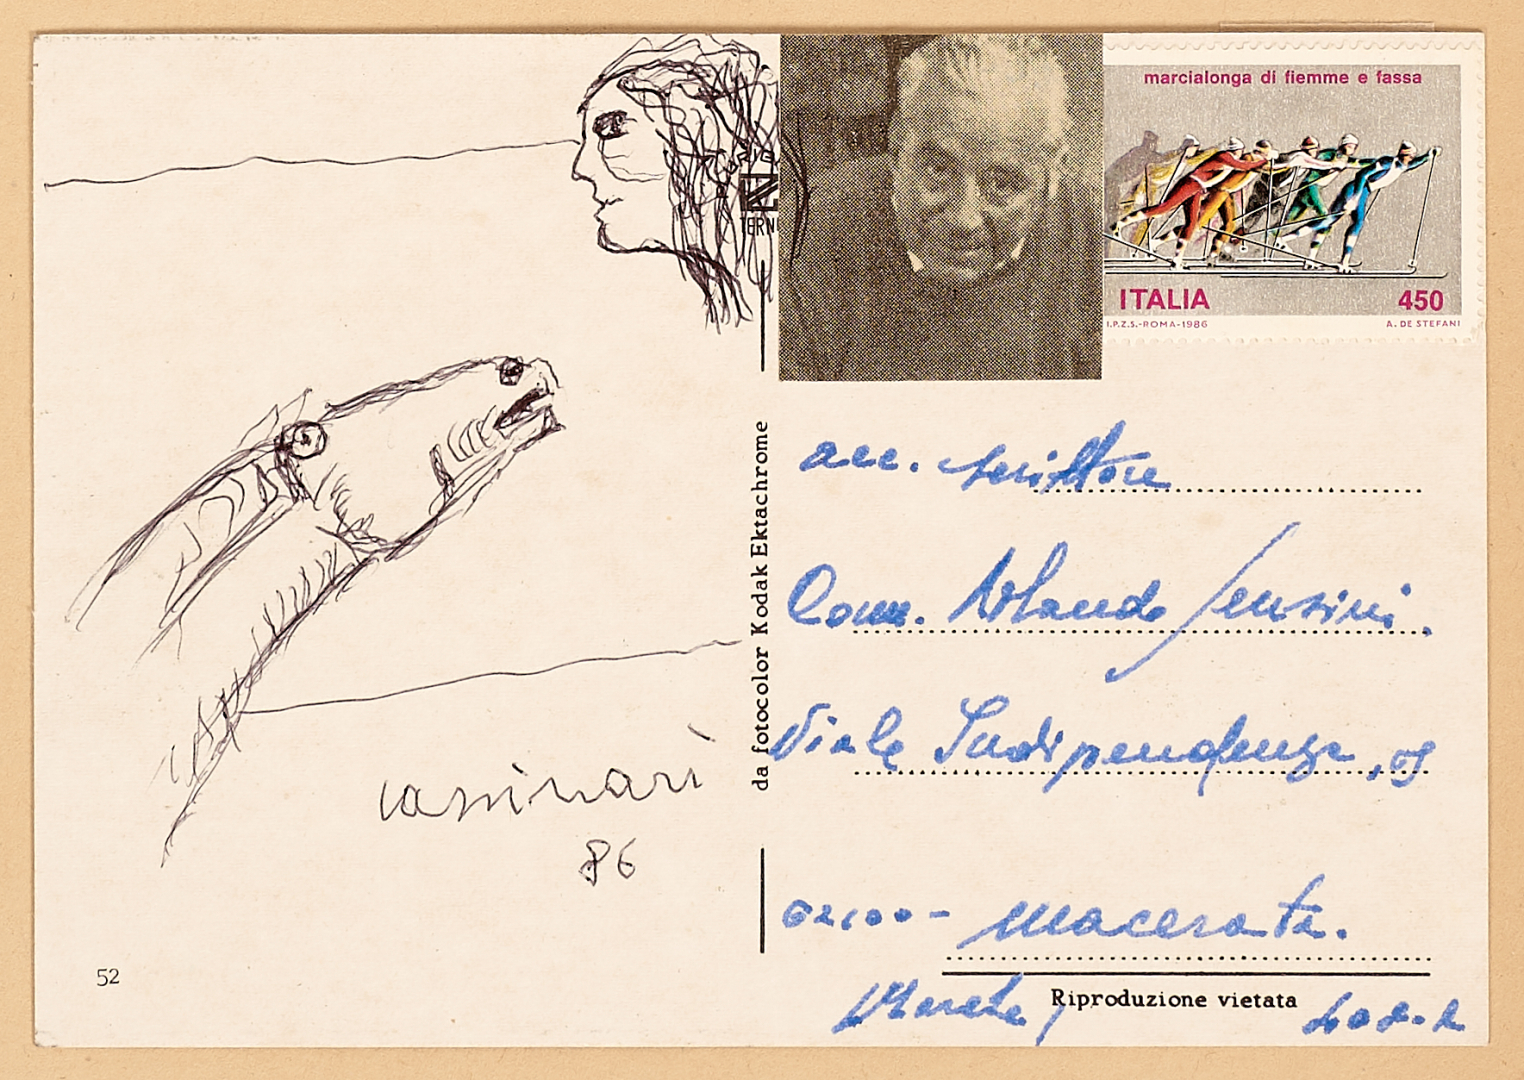 marcialonga di fiemme e fassa
ITALIA 450
I.P.Z.S.-ROMA-1986 A. DE STEFANI
TERN
da fotocolor Kodak Ektachrome
acc. scrittore
Com. Rolando Sensini.
Viale Indipendenza,
62100- Macerata.
Marche
Riproduzione vietata
cassinari
86
52